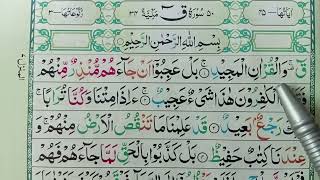 اٰيَاتُهَا ٤٥ ٥٠ سُوْرَةُ قٓ مَكِّيَّةٌ ٣٤ رُكُوْعَاتُهَا ٣
بِسْمِ اللّٰهِ الرَّحْمٰنِ الرَّحِيْمِ
قٓ ۚ وَالْقُرْاٰنِ الْمَجِيْدِ ۚ بَلْ عَجِبُوْۤا اَنْ جَآءَهُمْ مُّنْذِرٌ مِّنْهُمْ
الْكٰفِرُوْنَ هٰذَا شَیْءٌ عَجِيْبٌ ۚ ءَاِذَا مِتْنَا وَكُنَّا تُرَابًا ۚ
رَجْعٌۢ بَعِيْدٌ قَدْ عَلِمْنَا مَا تَنْقُصُ الْاَرْضُ مِنْهُمْ ۚ وَ
عِنْدَنَا كِتٰبٌ حَفِيْظٌ بَلْ كَذَّبُوْا بِالْحَقِّ لَمَّا جَآءَهُمْ فَهُمْ